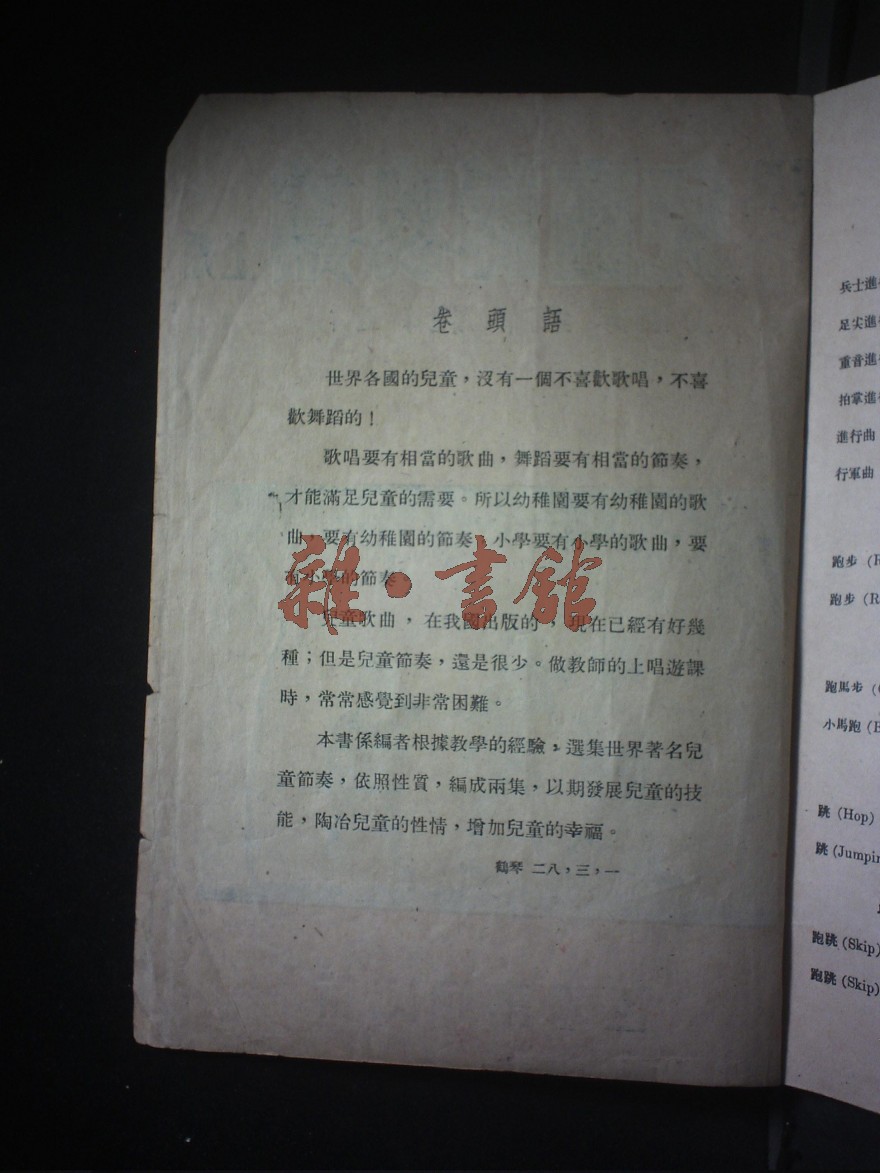 卷頭語
世界各國的兒童，沒有一個不喜歡歌唱，不喜
歡舞蹈的！
歌唱要有相當的歌曲，舞蹈要有相當的節奏，
才能滿足兒童的需要。所以幼稚園要有幼稚園的歌
曲，要有幼稚園的節奏，小學要有小學的歌曲，要
有小學的節奏。
兒童歌曲，在我國出版的，現在已經有好幾
種；但是兒童節奏，還是很少。做教師的上唱遊課
時，常常感覺到非常困難。
本書係編者根據教學的經驗，選集世界著名兒
童節奏，依照性質，編成兩集，以期發展兒童的技
能，陶冶兒童的性情，增加兒童的幸福。
鶴琴 二八，三，一
雜·書館
兵士進
足尖進
重音進
拍掌進
進行曲
行軍曲
跑步 (R
跑步 (R
跑馬步 (
小馬跑 (
跳 (Hop)
跳 (Jumpin
跑跳 (Skip)
跑跳 (Skip)